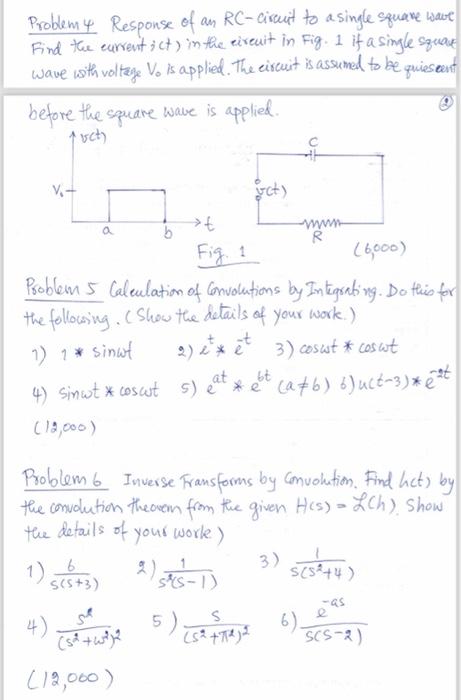 Problem 4 Response of an RC-circuit to a single square wave
Find the current i(t) in the circuit in Fig. 1 if a single square
wave with voltage V₀ is applied. The circuit is assumed to be quiescent
before the square wave is applied.
②
v(t)
C
V₀
v(t)
a b t
R
Fig. 1 (6,000)
Problem 5 Calculation of Convolutions by Integrating. Do this for
the following. (Show the details of your work.)
1) 1 * sinωt 2) e^t * e^-t 3) cosωt * cosωt
4) sinωt * cosωt 5) e^at * e^bt (a≠b) 6) u(t-3) * e^-2t
(12,000)
Problem 6 Inverse Transforms by Convolution. Find h(t) by
the convolution theorem from the given H(s) = ℒ(h). Show
the details of your work)
1) 6/s(s+3) 2) 1/s²(s-1) 3) 1/s(s²+4)
4) s²/(s²+ω²)² 5) s/(s²+π²)² 6) e^-as/s(s-2)
(12,000)